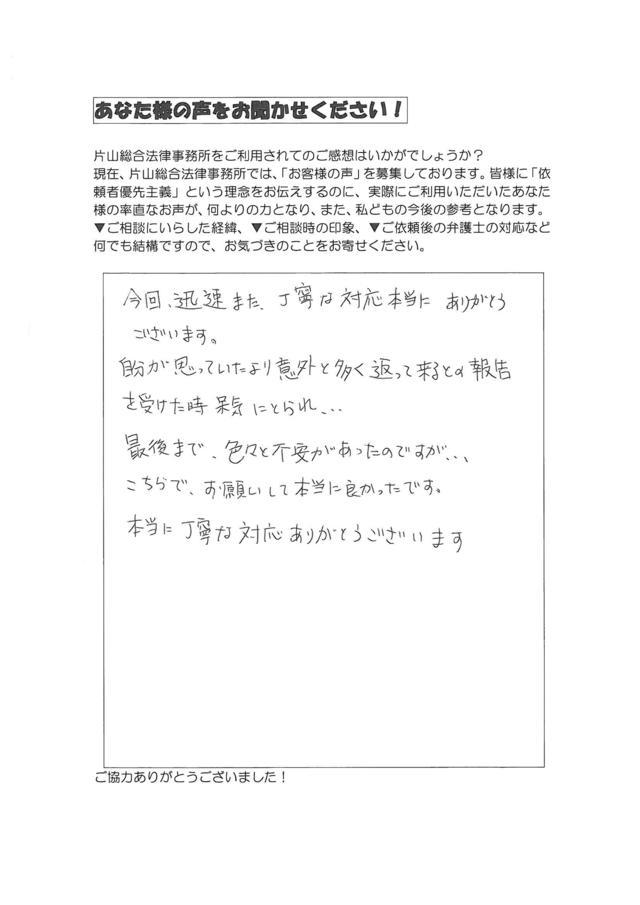 あなた様の声をお聞かせください！
片山総合法律事務所をご利用されてのご感想はいかがでしょうか？
現在、片山総合法律事務所では、「お客様の声」を募集しております。皆様に「依
頼者優先主義」という理念をお伝えするのに、実際にご利用いただいたあなた
様の率直なお声が、何よりの力となり、また、私どもの今後の参考となります。
▼ご相談にいらした経緯、▼ご相談時の印象、▼ご依頼後の弁護士の対応など
何でも結構ですので、お気づきのことをお寄せください。
今回、迅速また、丁寧な対応本当に ありがとう
ございます。
自分が思っていたより意外と多く返って来るとの報告
を受けた時 呆気にとられ...
最後まで、色々と不安があったのですが、、、
こちらで、お願いして本当に良かったです。
本当に丁寧な対応ありがとうございます
ご協力ありがとうございました！